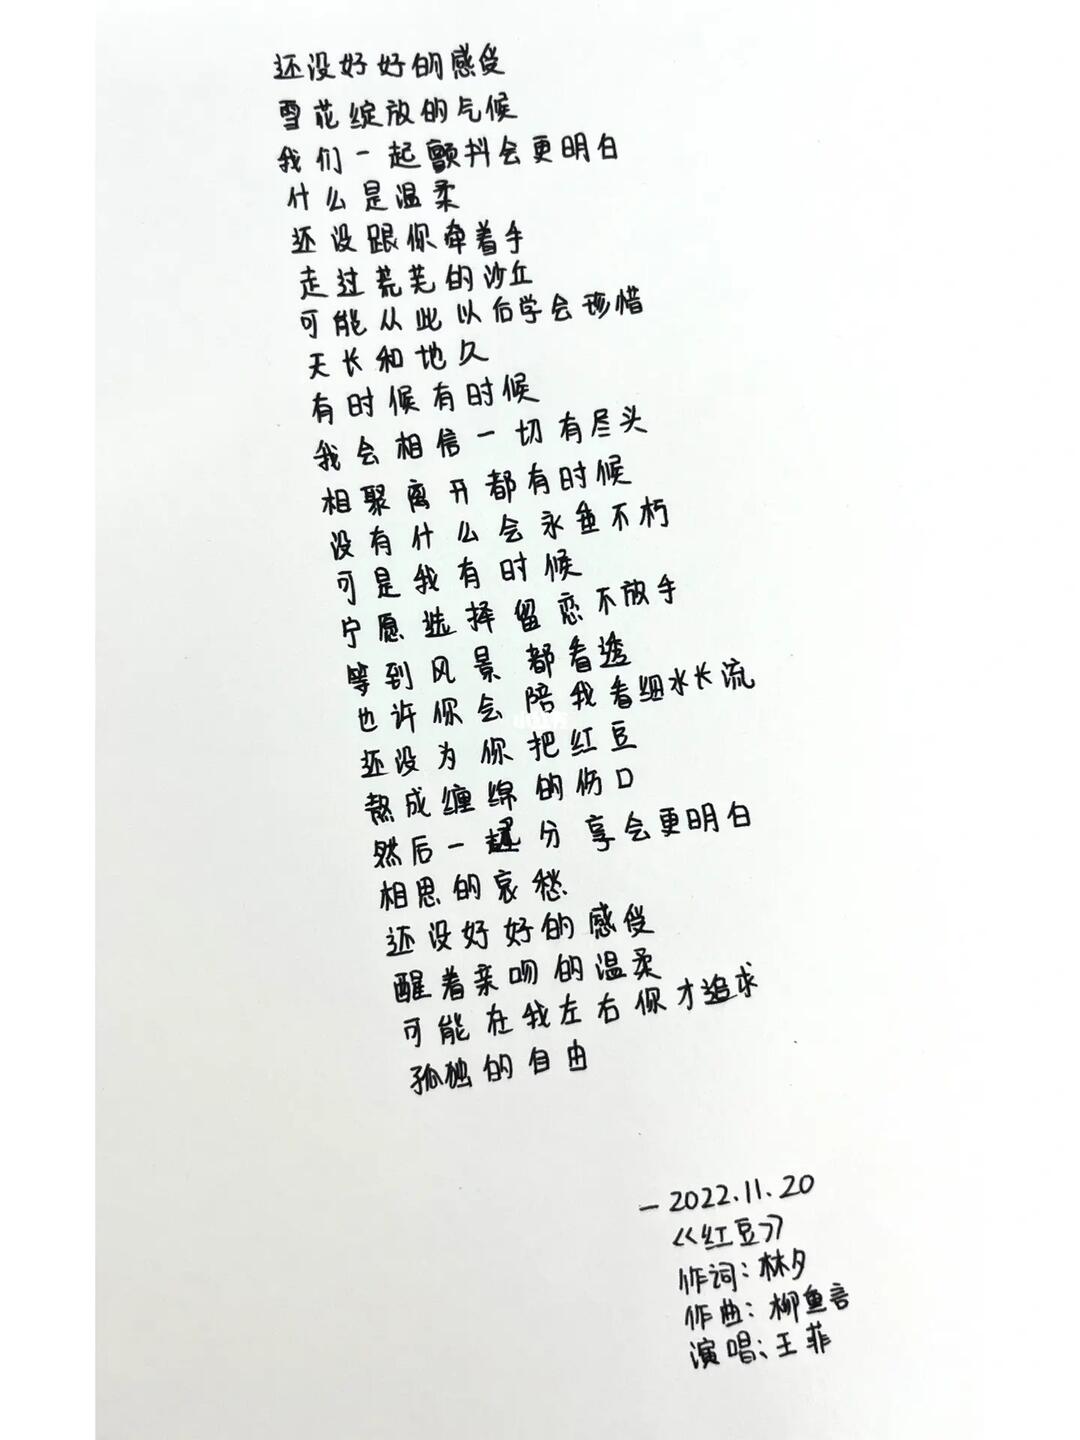 还没好好的感受
雪花绽放的气候
我们一起颤抖会更明白
什么是温柔
还没跟你牵着手
走过荒芜的沙丘
可能从此以后学会珍惜
天长和地久
有时候有时候
我会相信一切有尽头
相聚离开都有时候
没有什么会永垂不朽
可是我有时候
宁愿选择留恋不放手
等到风景都看透
也许你会陪我看细水长流
还没为你把红豆
熬成缠绵的伤口
然后一起分享会更明白
相思的哀愁
还没好好的感受
醒着亲吻的温柔
可能在我左右你才追求
孤独的自由
一2022.11.20
《红豆》
作词:林夕
作曲:柳鱼言
演唱:王菲